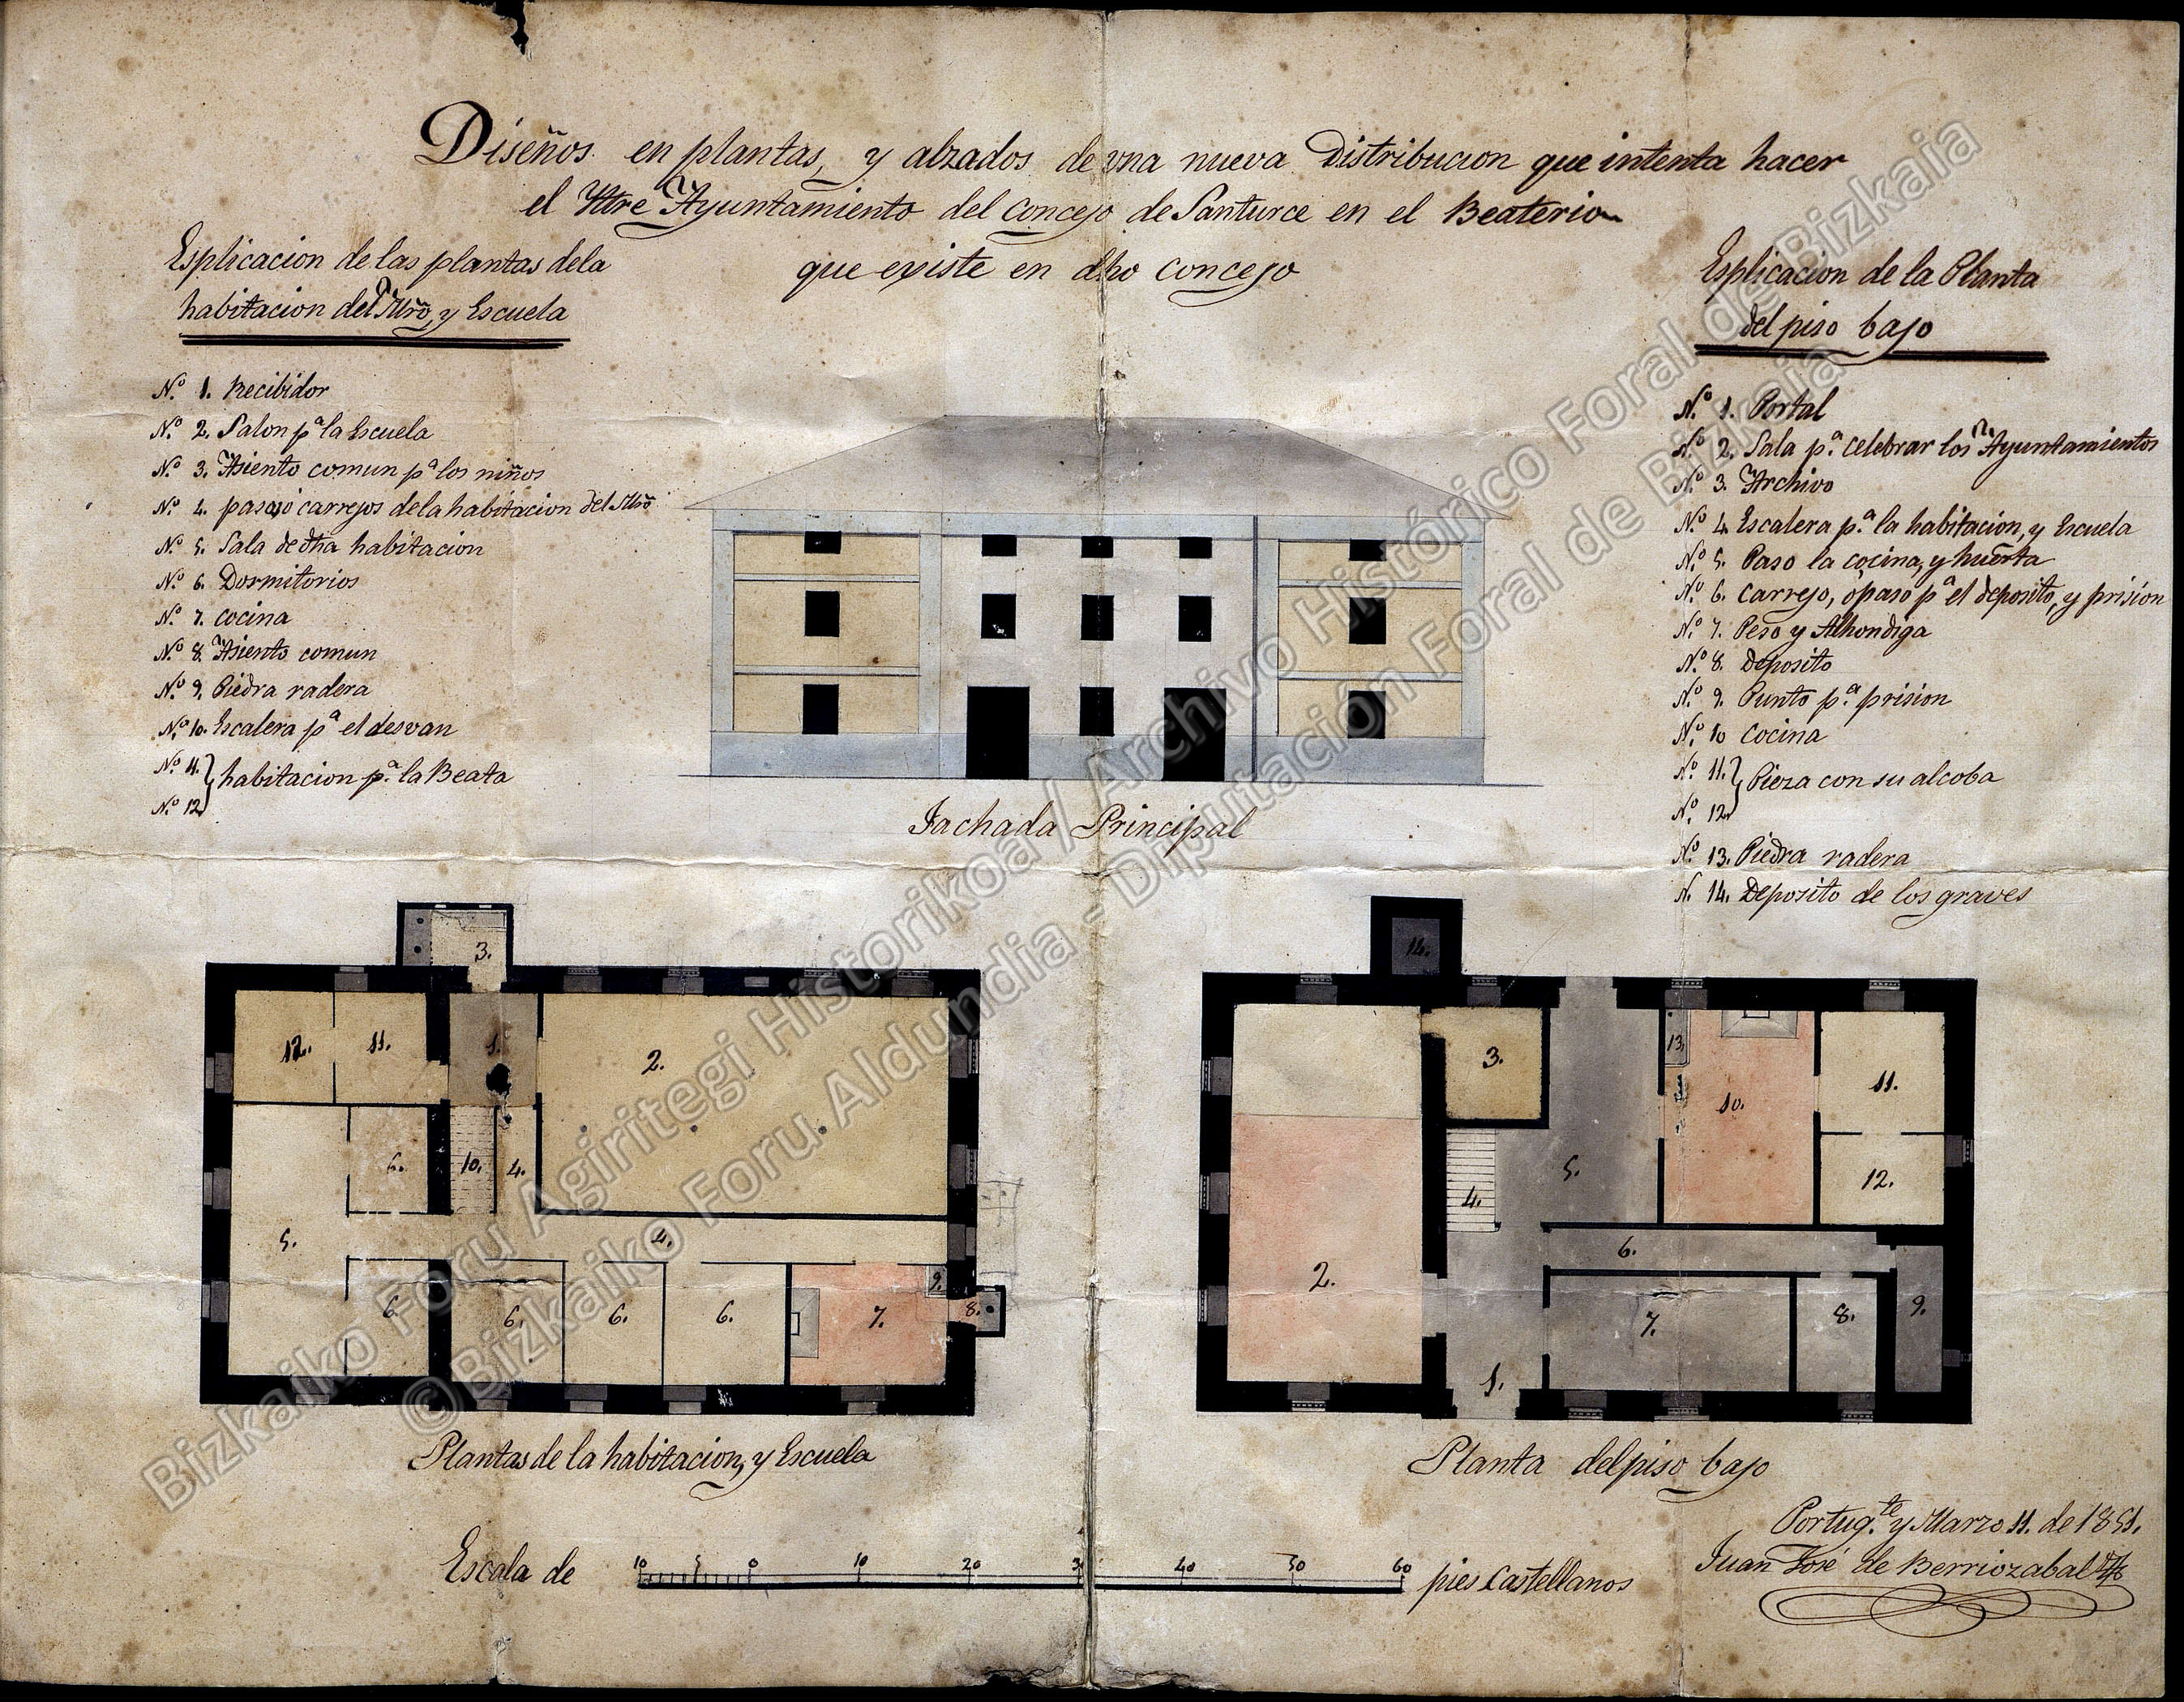 Diseños en plantas, y alzados de vna nueva Distribucion que intenta hacer
el Yltre Ayuntamiento del concejo de Santurce en el Beaterio
que existe en dho concejo
Esplicacion de las plantas dela
habitacion del Mrõ, y Escuela
N.º 1. Recibidor
N.º 2. Salon pª la Escuela
N.º 3. Asiento comun pª los niños
N.º 4. paso, ó carrejos dela habitacion del Mrõ
N.º 5. Sala de dha habitacion
N.º 6. Dormitorios
N.º 7. cocina
N.º 8. Asiento comun
N.º 9. Piedra radera
N.º 10. Escalera pª el desvan
N.º 11. } habitacion p.ª la Beata
N.º 12
Esplicacion de la Planta
del piso bajo
N.º 1. Portal
N.º 2. Sala p.ª celebrar los Ayuntamientos
N.º 3. Archivo
N.º 4. Escalera p.ª la habitacion, y Escuela
N.º 5. Paso la cocina, y huerta
N.º 6. carrejo, ó paso pª el deposito, y prision
N.º 7. Peso y Alhondiga
N.º 8. Deposito
N.º 9. Punto p.ª prision
N.º 10 cocina
N.º 11. } Pieza con su alcoba
N.º 12
N.º 13. Piedra radera
N. 14. Deposito de los graves
Fachada Principal
3.
12. 11. 1. 2.
6. 10. 4.
5. 4.
6. 6. 6. 6. 7. 9. 8.
Plantas de la habitacion, y Escuela
14.
3. 13. 10. 11.
4. 5. 12.
2. 6.
7. 8. 9.
1.
Planta del piso bajo
Escala de 10 5 0 10 20 30 40 50 60 pies Castellanos
Portug.te y Marzo 11. de 1851.
Juan José de Berriozabal
Bizkaiko Foru Agiritegi Historikoa / Archivo Histórico Foral de Bizkaia
© Bizkaiko Foru Aldundia - Diputación Foral de Bizkaia